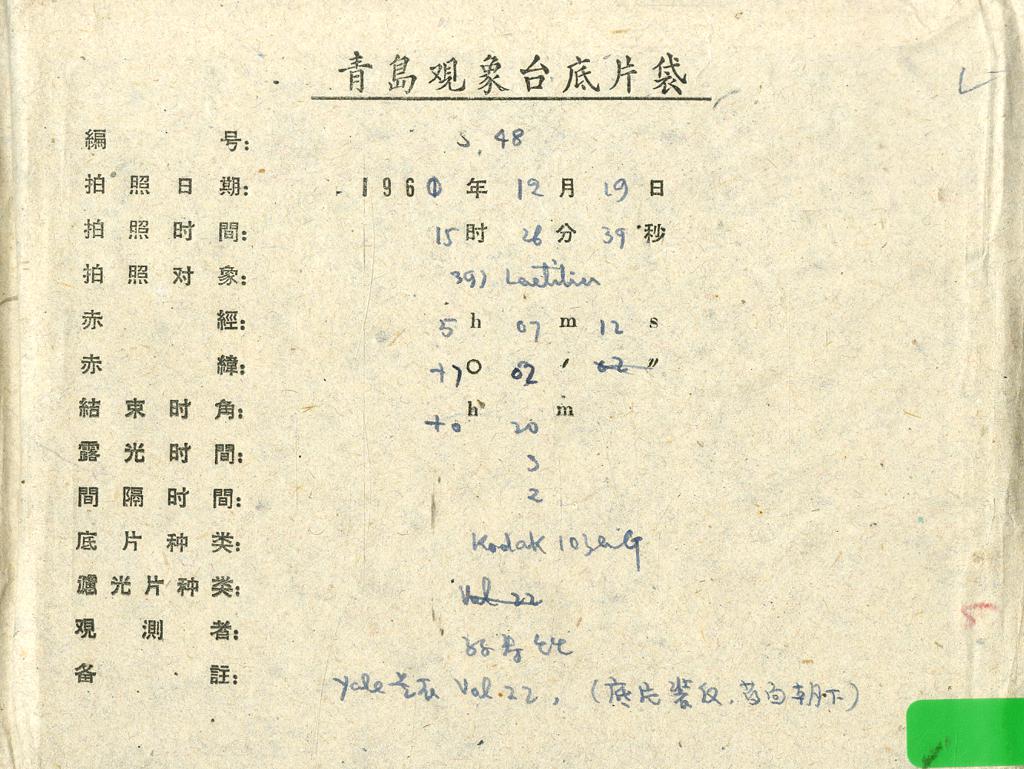 青島观象台底片袋
編号: S. 48
拍照日期: 1960年 12月 19日
拍照时間: 15时 26分 39秒
拍照对象: 39) Laetitia
赤經: 5h 07m 12s
赤緯: +7° 02′ 02″
結束时角: +0h 20m
露光时間: 3
間隔时間: 2
底片种类: Kodak 103aG
濾光片种类: Vol 22
观測者:
备註: Yale 星表 Vol. 22, (底片装反, 药面朝下)